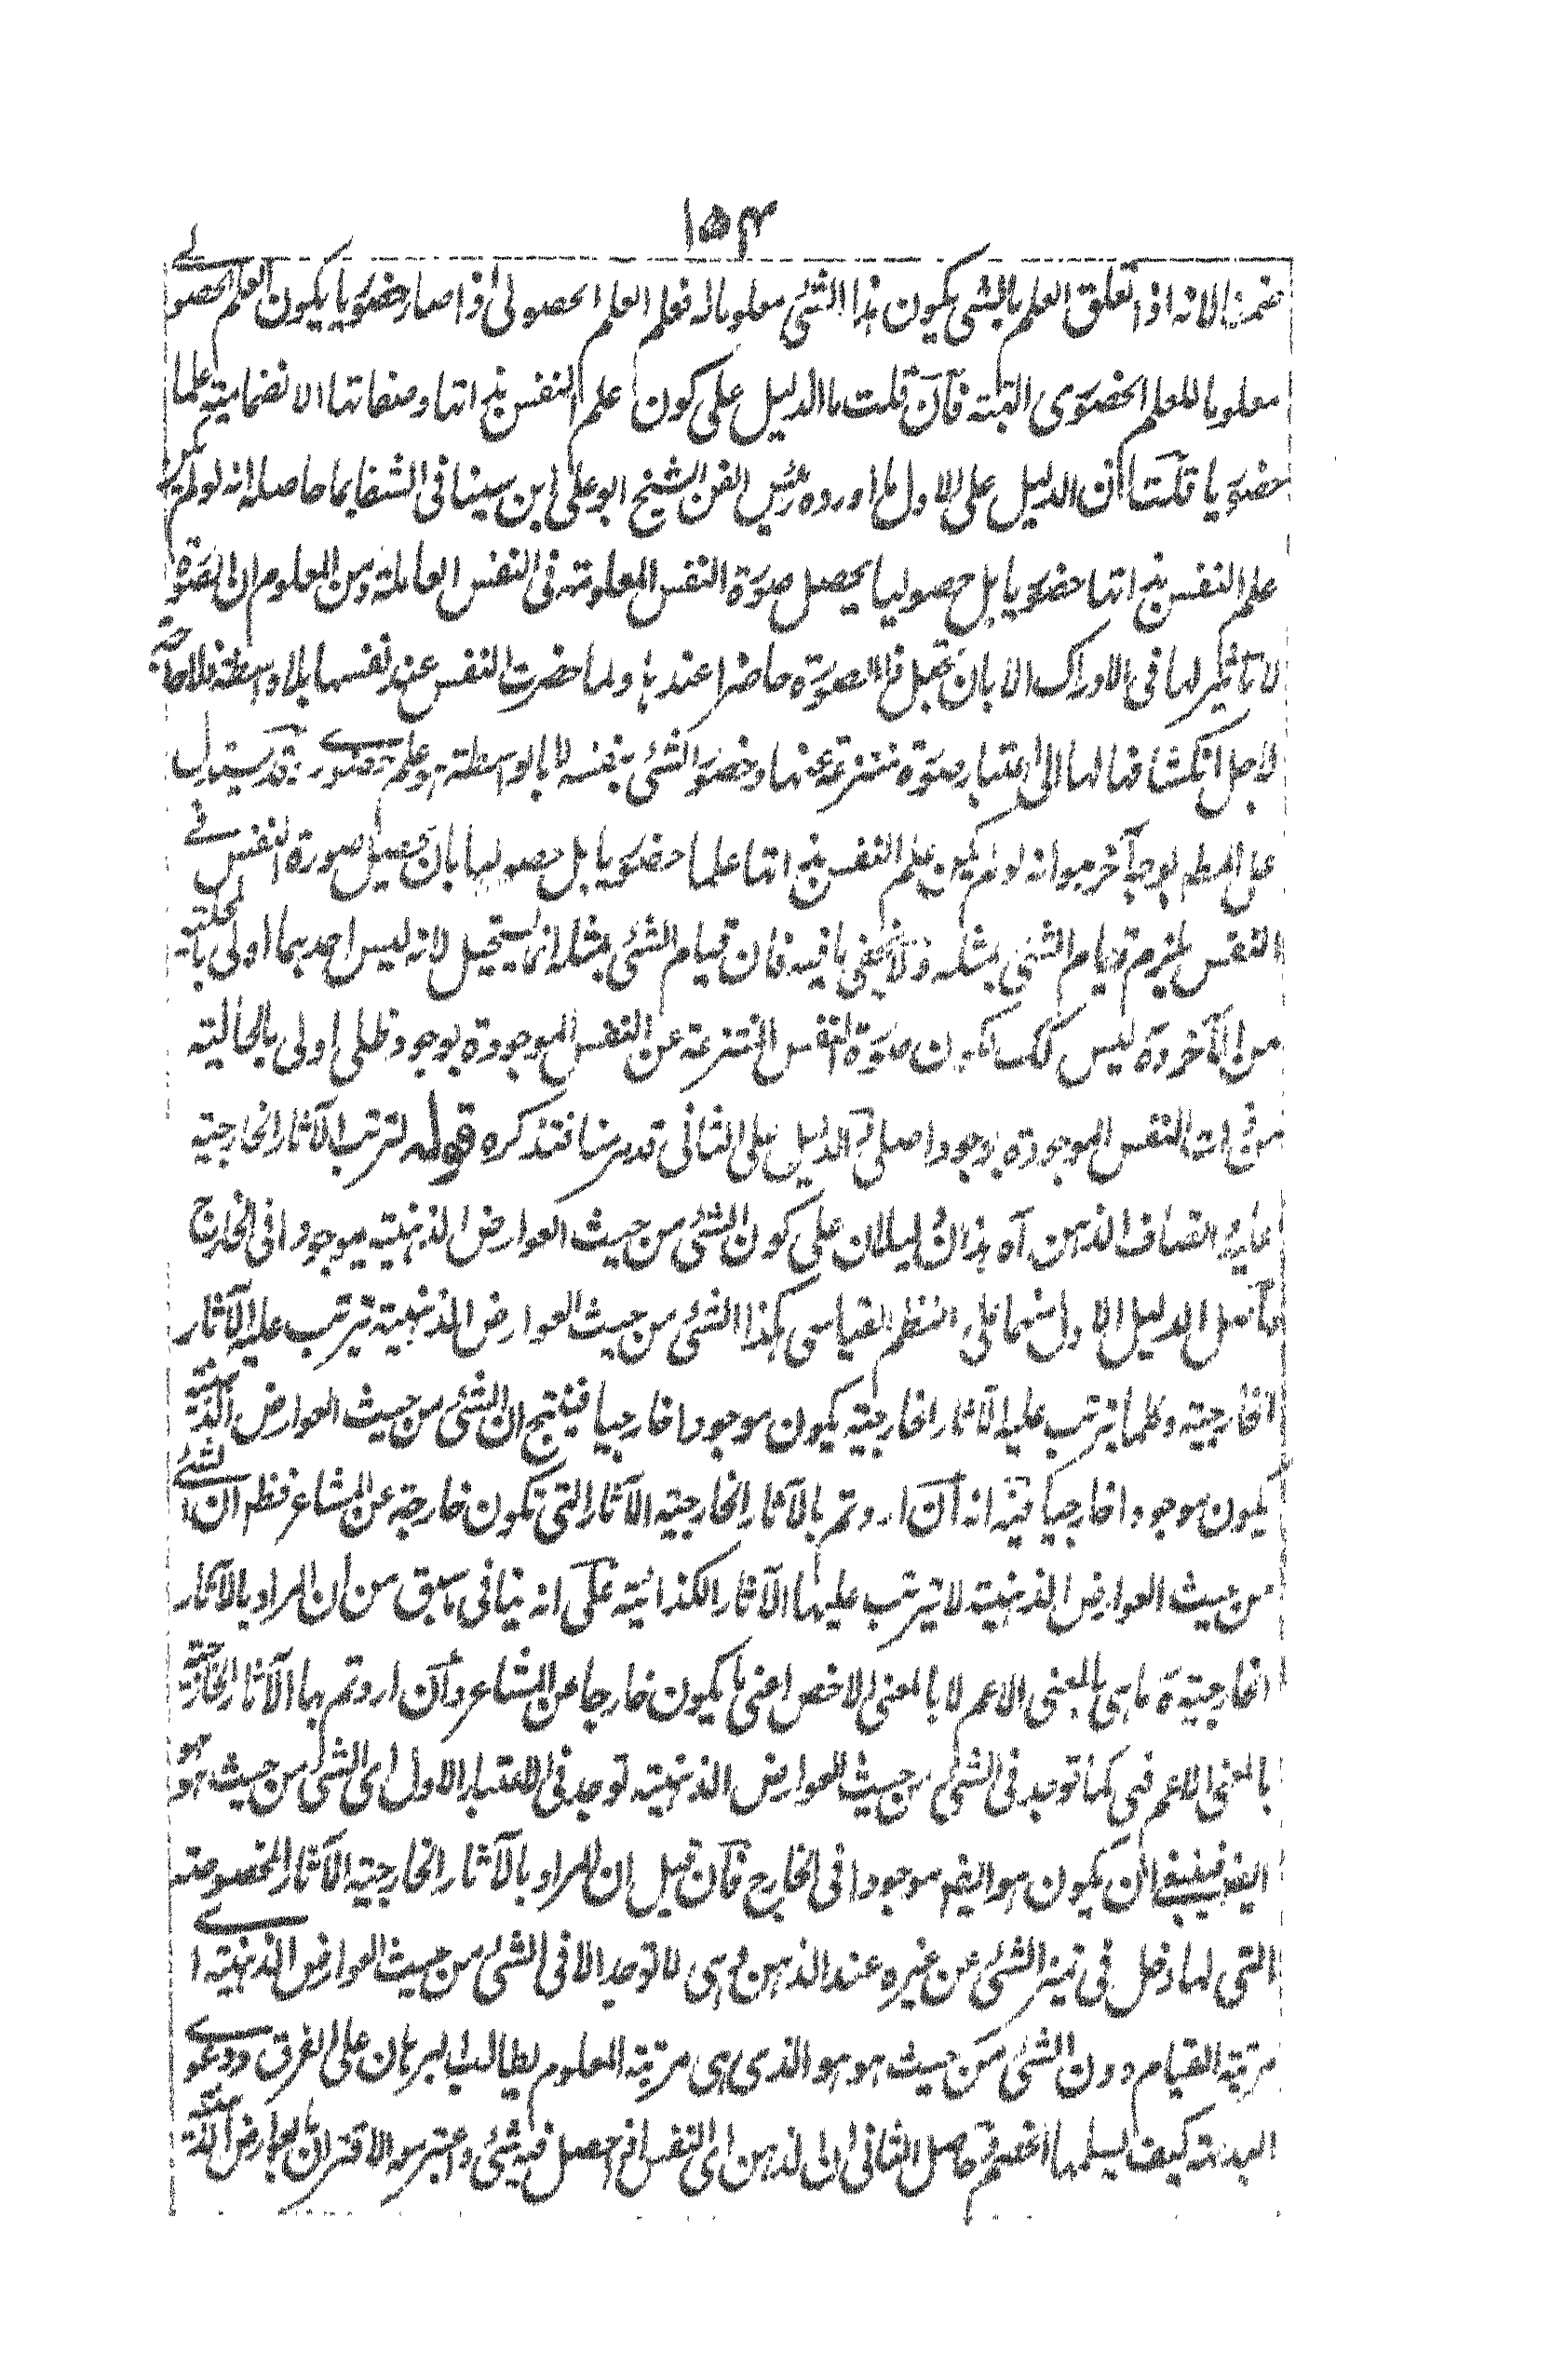 ۱۵۴
ضمنا لانه اذا تعلق العلم بالشئ يكون هذا الشئ معلوما له فعلم العلم الحصولى اذا صار حضوريا يكون العلم الحصولے
معلوما للعلم الحضورى البتة فان قلت ما الدليل على كون علم النفس بذاتها وصفاتها الانضمامية علما
حضوريا قلت ان الدليل على الاول ما اورده رئيس الفن الشيخ ابو على ابن سينا فى الشفا بما حاصله انه لو لم يكن
علم النفس بذاتها حضوريا بل حصوليا يحصل صورة النفس المعلومة فى النفس العاملة ومن المعلوم ان الصورة
لا تاثير لها فى الادراك الا بان تجعل ذا الصورة حاضرا عندها ولما حضرت النفس عند نفسها بلا واسطة فلا حاجة
لاجل انكشافها لها الى اعتبار صورة منتزعة عنها وحضور الشئ بنفسه لا بالواسطة هو علم حضورے وقد يستدل
على المط بوجه آخر هو انه لو لم يكن علم النفس بذاتها علما حضوريا بل حصوليا بان تحصيل صورة النفس فے
النفس يلزم قيام الشئ بمثله ولا يخفى ما فيه فان قيام الشئ بمثله انما يستحيل لانه ليس احدهما اولى بالمحلية
من الآخر وه ليس كك لكون صورة النفس المنتزعة عن النفس الموجودة بوجود ظلى اولى بالحالية
من ذات النفس الموجودة بوجود اصلى والدليل على الثانى قد مر منا فتذكره قوله لترتب الآثار الخارجية
عليه واتصاف الذهن آه هذان دليلان على كون الشئ من حيث العوارض الذهنية موجودا فى الخارج
حاصل الدليل الاول منهما على النظم القياسى هكذا الشئ من حيث العوارض الذهنية تيرتب عليه الآثار
الخارجية وكلما يترتب عليه الآثار الخارجية يكون موجودا خارجيا فينتج ان الشئ من حيث العوارض الذهنية
يكون موجودا خارجيا فيه انه ان اردتم بالآثار الخارجية الآثار التى تكون خارجة عن المشاعر فظ ان الشئے
من حيث العوارض الذهنية لا تيرتب عليها الآثار الكذائية على انه ينافى ما سبق من ان المراد بالآثار
الخارجية ة ما هى بالمعنى الاعم لا بالمعنى الاخص اعنى ما يكون خارجا عن المشاعر وان اردتم بها الآثار الخارجية
بالمعنى الاعم فهى كما توجد فى الشئ من حيث العوارض الذهنية توجد فى الاعتبار الاول اى الشئ من حيث هو هو
ايضه فينبغے ان يكون هو ايضه موجودا فى الخارج فان قيل ان المراد بالآثار الخارجية الآثار المخصوصة
التى لها دخل فى تميز الشئ عن غيره عند الذهن وهى لا توجد الا فى الشئ من حيث العوارض الذهنية اے
مرتبة القيام دون الشئ من حيث هو هو الذى هى مرتبة المعلوم يطالب البرهان على الفرق ودعوے
البداهة كيف يسلمها الخصم وحاصل الثانى ان الذهن اى النفس اذا حصل فيه شئ واعتبر معه الاقتران بالعوارض الذهنية